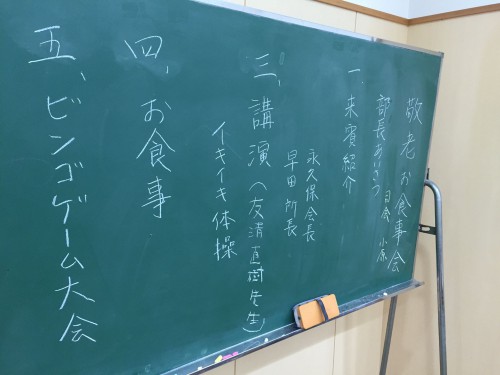 敬老お食事会
部長あいさつ
司会 小原
一、来賓紹介
永久保会長
早田所長
三、講演(友清直樹先生)
イキイキ体操
四、お食事
五、ビンゴゲーム大会